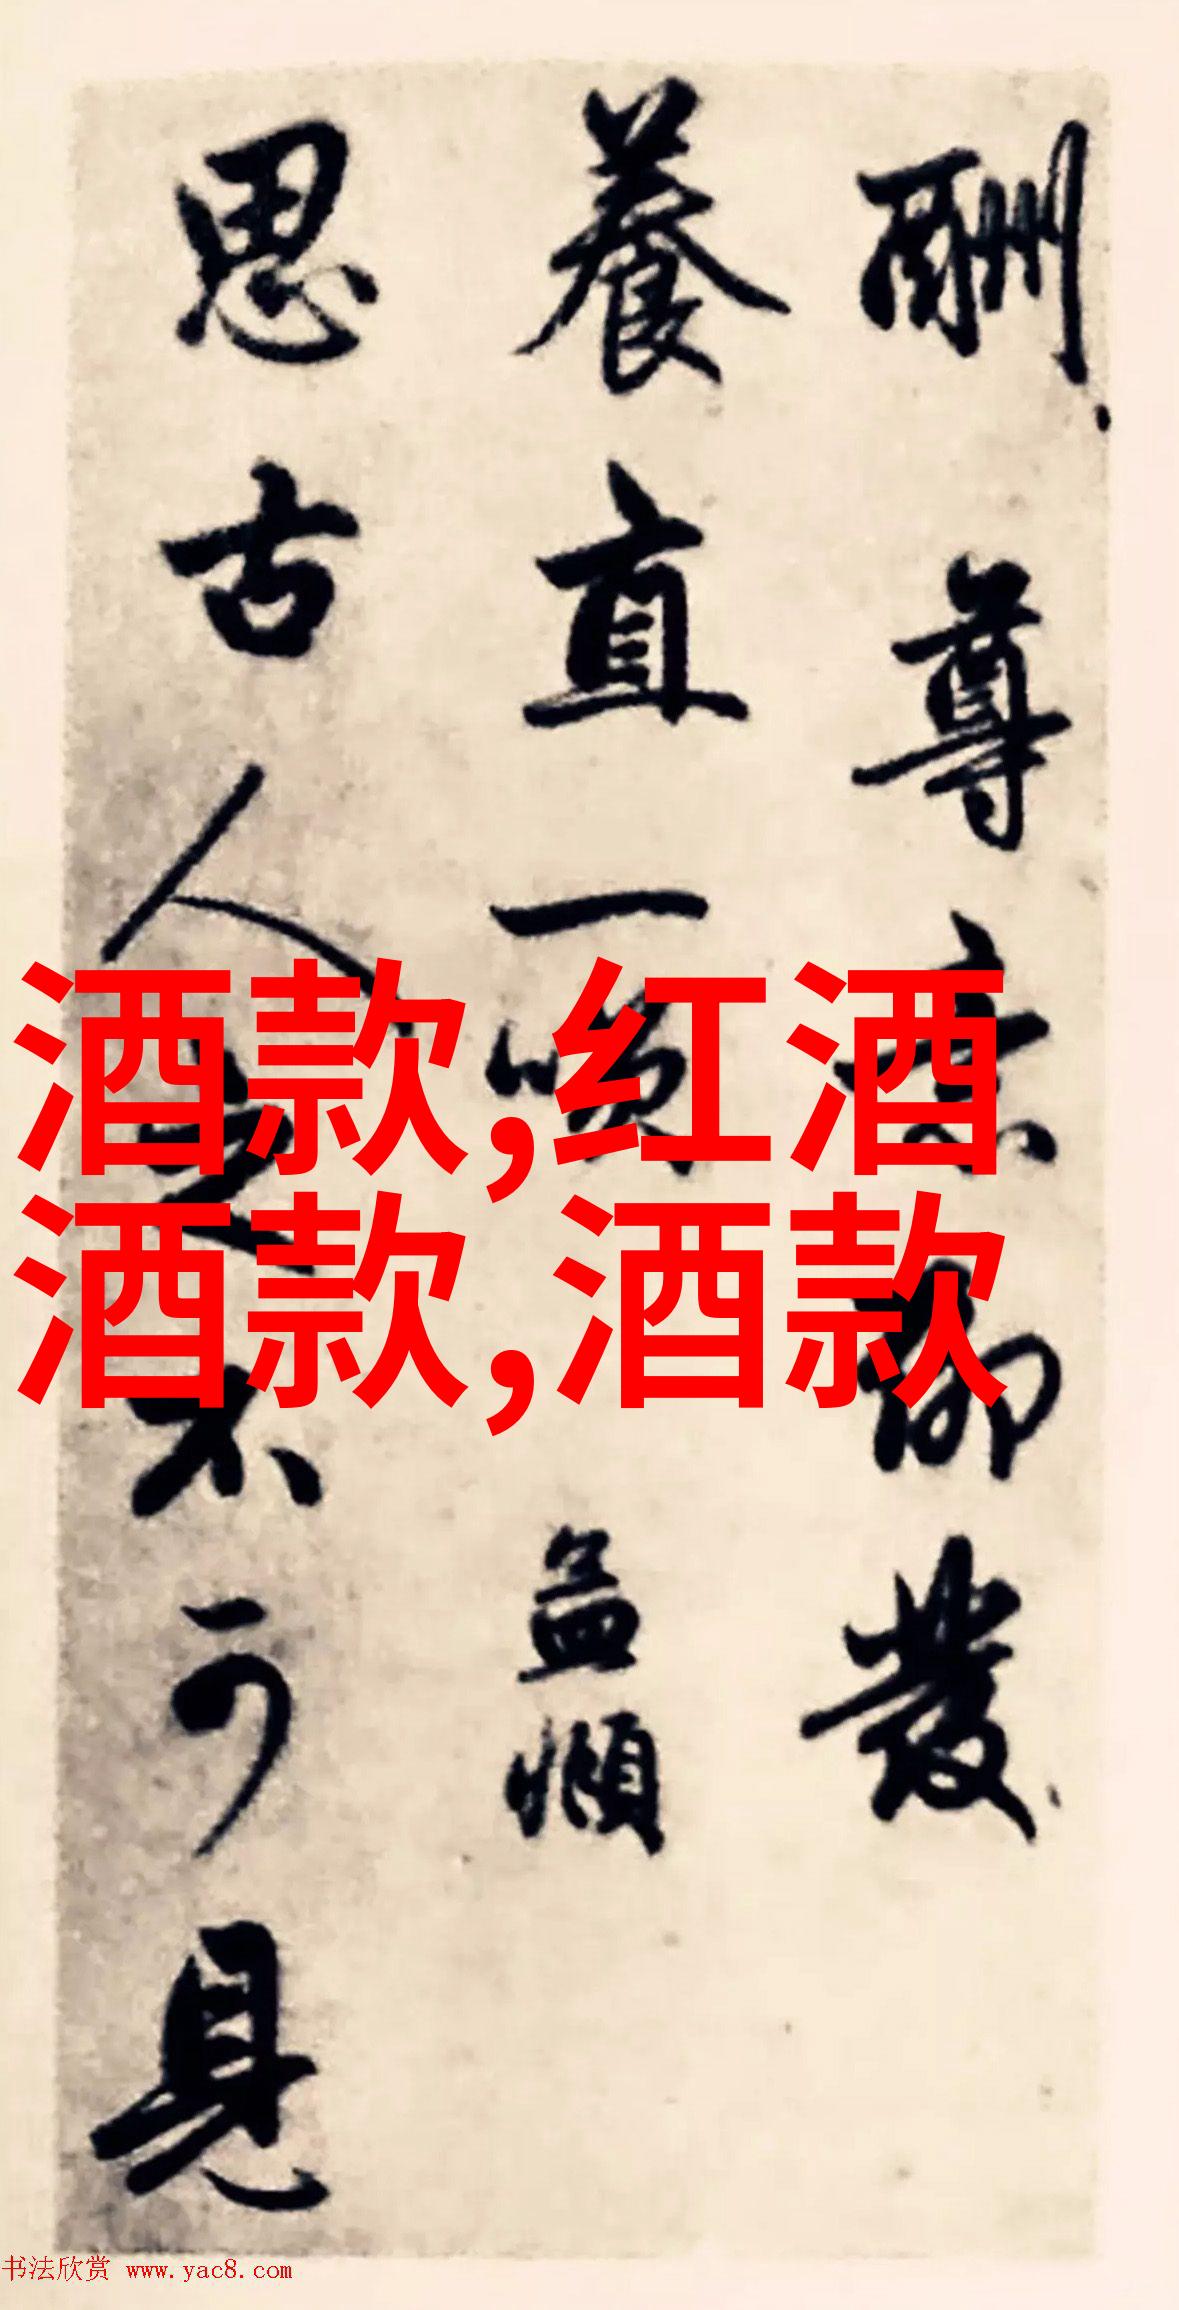 酬尊聊發
養直一
孟頫
思古人之不可見
酒款,红酒
酒款,酒款
书法欣赏 www.yac8.com